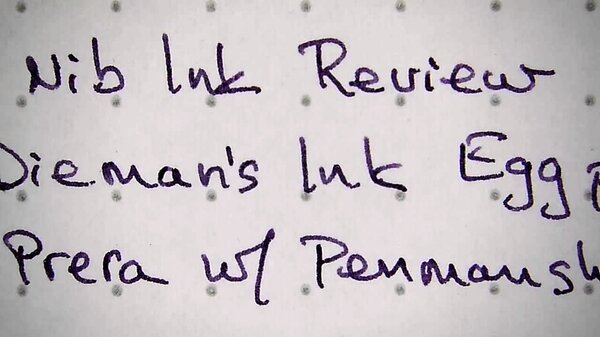 Nib Ink Review
Dieman's Ink Egg
Prera w/ Penmansh